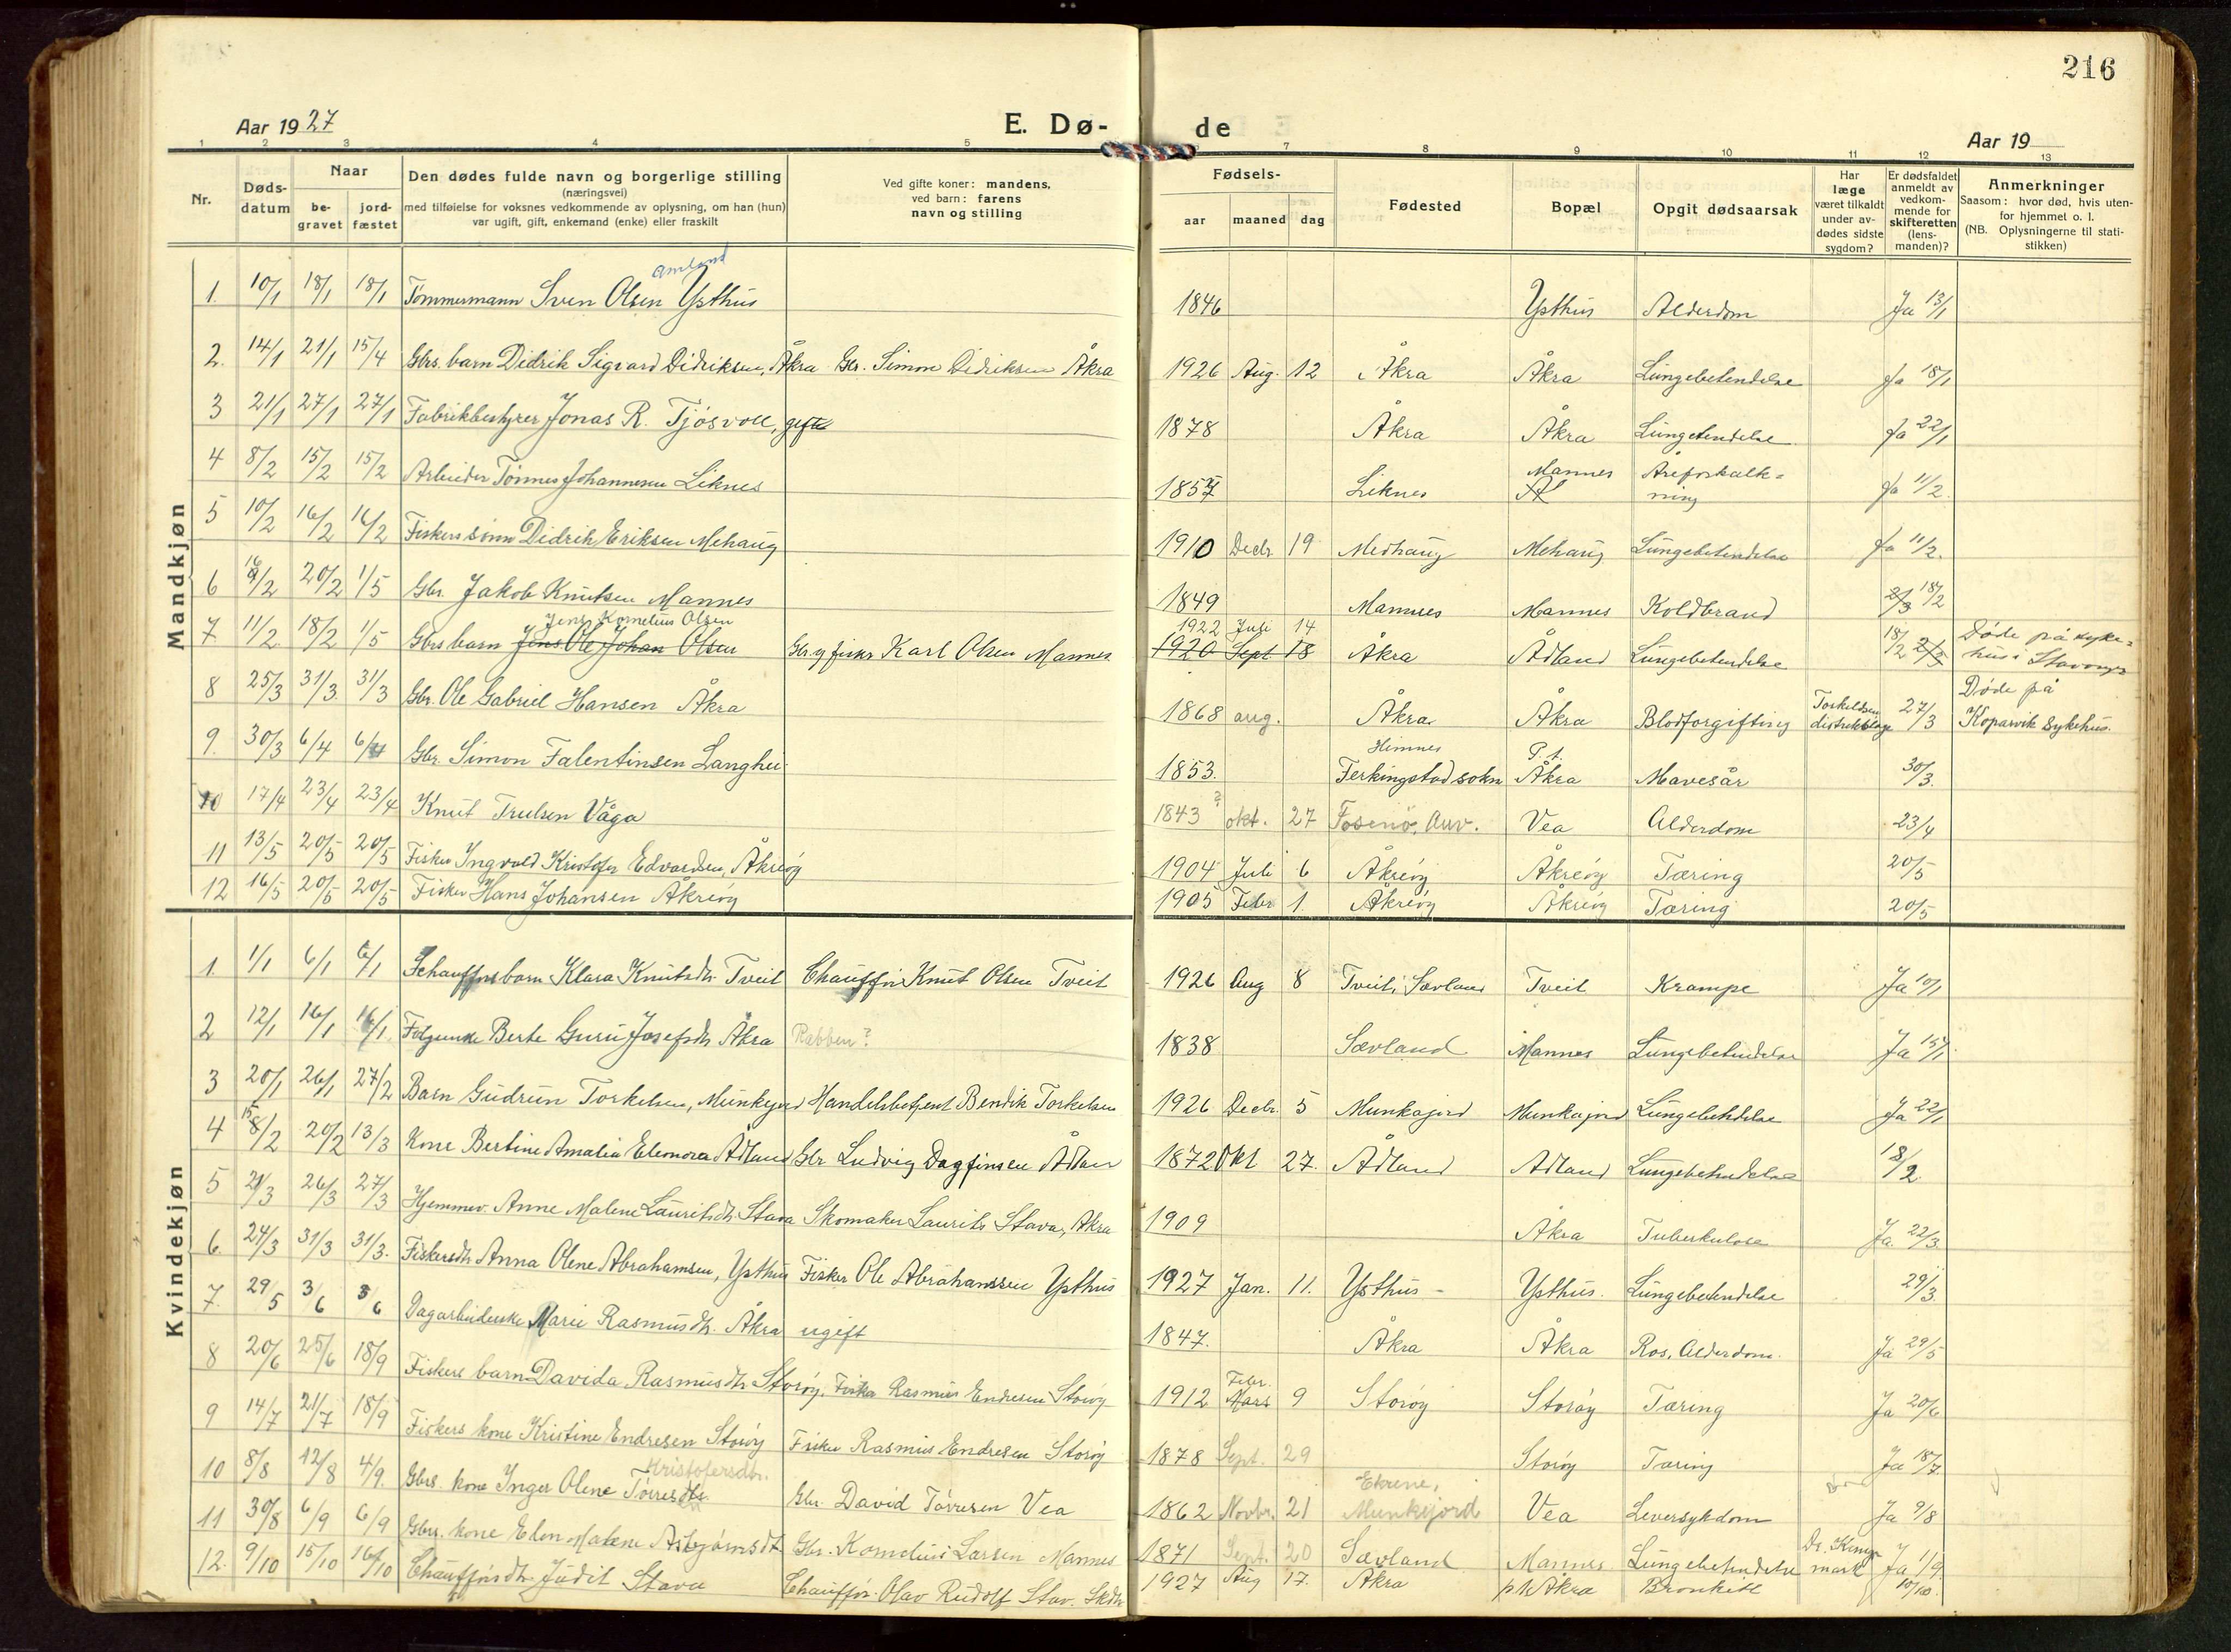 216
Aar 1927
E. Dø-
de
Aar 19
1 2 3 4 5 7 8 9 10 11 12 13
Nr.
Døds-
datum
Naar
be-
gravet
jord-
fæstet
Den dødes fulde navn og borgerlige stilling
(næringsvei)
med tilføielse for voksnes vedkommende av oplysning, om han (hun)
var ugift, gift, enkemand (enke) eller fraskilt
Ved gifte koner: mandens,
ved barn: farens
navn og stilling
Fødsels-
aar maaned dag
Fødested
Bopæl
Opgit dødsaarsak
Har
læge
været tilkaldt
under av-
dødes sidste
sygdom?
Er dødsfaldet
anmeldt av
vedkom-
mende for
skifteretten
(lens-
manden)?
Anmerkninger
Saasom: hvor død, hvis uten-
for hjemmet o. l.
(NB. Oplysningerne til stati-
stikken)
Mandkjøn
Amland
1. 10/1 18/1 18/1 Tømmermann Sven Olsen Ysthus 1846 Ysthus Alderdom Ja 13/1
2. 14/1 21/1 15/4 Gbrs. barn Didrik Sigvard Didriksen, Åkra Gbr. Simon Didriksen Åkra 1926 Aug. 12 Åkra Åkra Lungebetendelse Ja 18/1
3 21/1 27/1 27/1 Fabrikbestyrer Jonas R. Tjøsvoll, gift 1878 Åkra Åkra Lungebetendelse Ja 22/1
4 8/2 15/2 15/2 Arbeider Tønnes Johannesen Liknes 1857 Liknes Mannes Åreforkalk=
ning Ja 11/2.
5 10/2 16/2 16/2 Fiskers sønn Didrik Eriksen Mehaug 1910 Decbr 19 Medhaug Mehaug Lungebetendelse Ja 11/2.
6 16/2 20/2 1/5 Gbr. Jakob Knutsen Mannes 1849 Mannes Mannes Koldbrand 2/3 18/2
Jens Kornelius Olsen 1922 Juli 14
7 11/2. 18/2 1/5 Gbrs barn Jens Ole Johan Olsen Gbr. og fisker Karl Olsen Mannes 1920 Sept 18 Åkra Ådland Lungebetendelse 18/2 2/3 Døde på syke=
hus i Stavanger
8 25/3 31/3 31/3 Gbr. Ole Gabriel Hansen Åkra 1868 aug. Åkra Åkra Blodforgiftning Torkeldsen
distriktslæge 27/3 Døde på
Kopervik sykehus.
9. 30/3 6/4 6/4 Gbr. Simon Falentinsen Langhei 1853. Himnes
Ferkingstad sokn P.t.
Åkra Mavesår 30/3.
10 17/4 23/4 23/4 Knut Trulsen Våga 1843 ? okt. 27 Fosenø, Auv. Vea Alderdom 23/4
11 13/5 20/5 20/5 Fisker Ingvald Kristofer Edvardsen, Åkreøy 1904 Juli 6 Åkreøy Åkreøy Tæring 20/5
12 16/5 20/5 20/5 Fisker Hans Johansen Åkreøy 1905 Febr 1. Åkreøy Åkreøy Tæring 20/5
Kvindekjøn
1. 1/1 6/1 6/1 Schaufførs barn Klara Knutsdtr. Tveit Chauffør Knut Olsen Tveit 1926 Aug 8 Tveit, Sævland Tveit Krampe Ja 10/1
2 12/1 16/1 16/1. Berte Guru Josefsdtr Åkra Rabben? 1838 Sævland Mannes Lungebetendelse Ja 15/1.
3 20/1 26/1 27/2 Barn Gudrun Torkelsen, Munkejord Handelsbetjent Bendik Torkelsen 1926 Decbr. 5 Munkajord Munkajord Lungebetendelse Ja 22/1
4 15/2 20/2 13/3 Kone Bertine Amalia Eleonora Ådland Gbr Ludvig Dagfinsen Ådland 1872 Okt 27. Ådland Ådland Lungebetendelse 18/2
5 21/3 26/3 27/3 Hjemmev. Anne Malene Lauritsdtr. Stava Skomaker Laurits Stava, Åkra 1909 Åkra Tuberkulose Ja 22/3
6. 24/3 31/3 31/3. Fiskersdtr Anna Olene Abrahamsen, Ysthus Fisker Ole Abrahamssen Ysthus 1927 Jan. 11. Ysthus - Ysthus. Lungebetendelse 29/3.
7. 29/5 3/6 3/6 Dagarbeiderske Marie Rasmusdtr. Åkra ugift 1847. Åkra Åkra Ros, Alderdom. Ja 29/5
8 20/6 25/6 18/9 Fiskers barn Davida Rasmusdtr Storøy. Fisker Rasmus Endresen Storøy 1912 Febr.
Mars 9 Storøy Storøy Tæring Ja 20/6
9 14/7 21/7 18/9 Fiskers kone Kristine Endresen Storøy Fisker Rasmus Endresen Storøy 1878 Sept. 29 Storøy Tæring Ja 18/7.
Kristofersdtr.
10 8/8 12/8 4/9. Gbrs. kone Inger Olene Tørresdtr. Gbr. David Tørresen Vea 1862 Novbr. 21 Ekrene,
Munkejord Vea Leversykdom Ja 9/8
11 30/8 6/9 6/9 Gbrs. kone Elen Malene Asbjørnsdt. Gbr. Kornelius Larsen Mannes 1871 Sept. 20 Sævland Mannes. Lungebetendelse Ja 1/9.
12. 9/10 15/10 16/10 Chaufførs dtr. Judit Stava Chauffør Olav Rudolf Stav. 1927 Aug 17. Åkra Åkra Bronkitt 10/10.